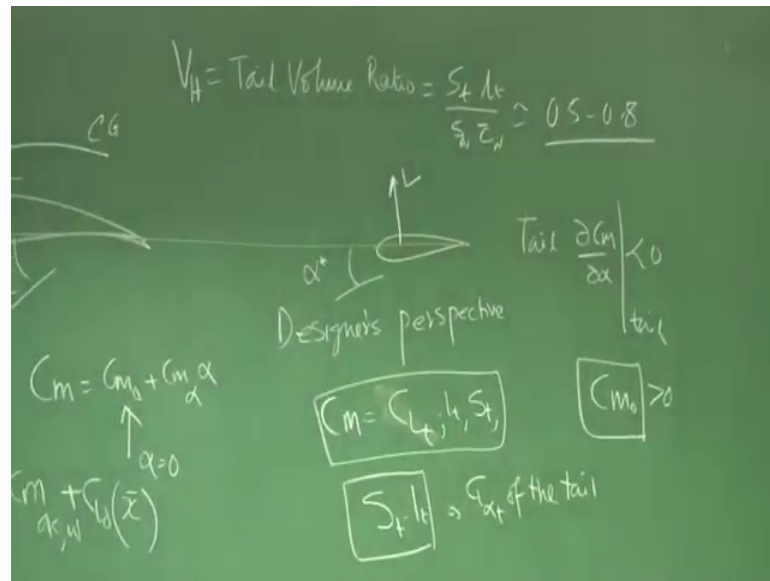 V_H = Tail Volume Ratio = S_t l_t / S_w c̄_w ≃ 0.5-0.8
CG
L
α+
Tail ∂Cm/∂α |tail < 0
Designer's perspective
Cm = Cm₀ + Cm_α α
α=0
Cm = C_Lt, lt, St,
Cm₀ > 0
Cm_ac,w + C_L0 (x̄)
St·lt of the tail